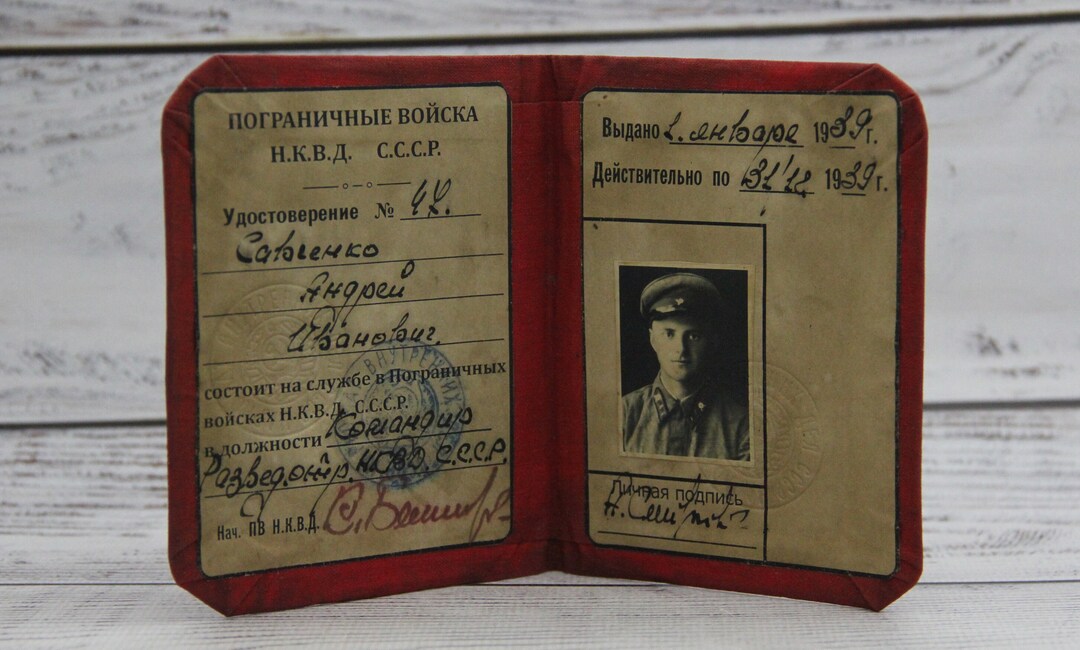 ПОГРАНИЧНЫЕ ВОЙСКА
Н.К.В.Д. С.С.С.Р.
Удостоверение № 42.
Савченко
Андрей
Иванович.
состоит на службе в Пограничных
войсках Н.К.В.Д. С.С.С.Р.
в должности Командир
Разведотр. НКВД. С.С.С.Р.
Нач. ПВ Н.К.В.Д.
ВНУТРЕННИХ
Выдано 2. января 1939г.
Действительно по 31/12 1939г.
Личная подпись